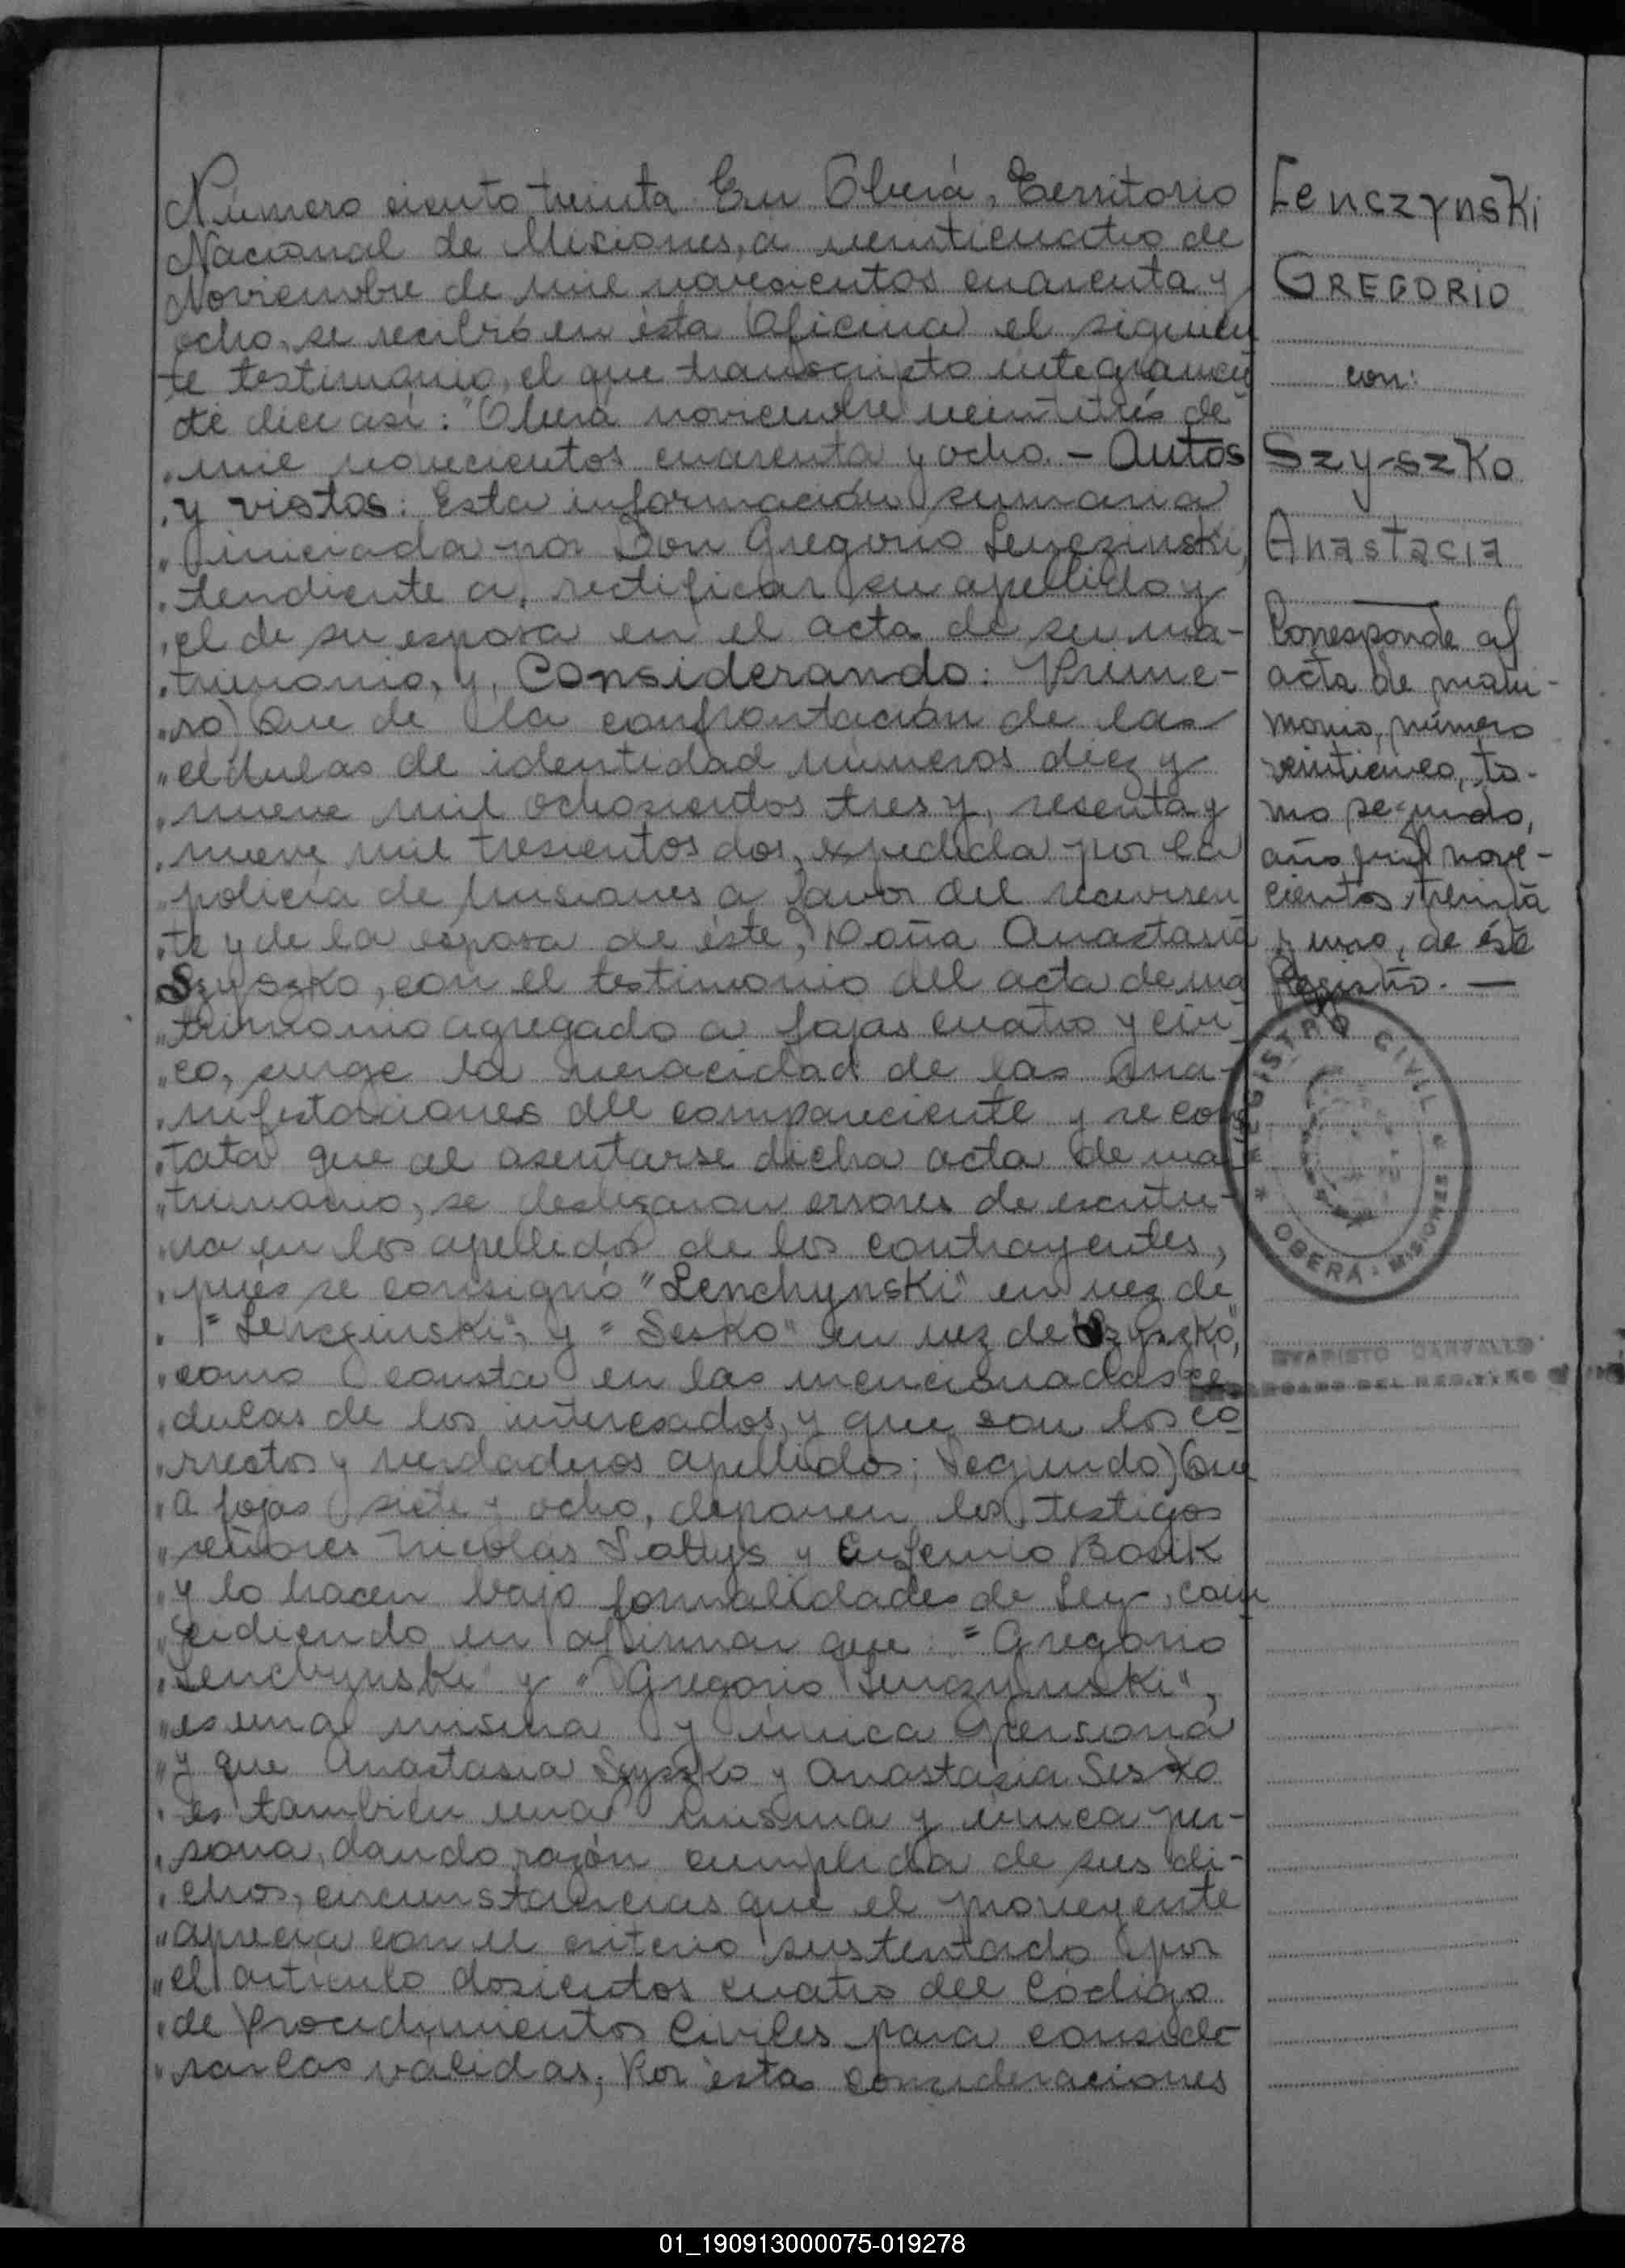 Número ciento treinta. En Oberá, Territorio
Nacional de Misiones, a veinticuatro de
Noviembre de mil novecientos cuarenta y
ocho, se recibió en ésta Oficina el siguien
te testimonio, el que transcripto integramen
te dice así: "Oberá noviembre veintitrés de
" mil novecientos cuarenta y ocho. - Autos
" y vistos: Esta información sumaria
" iniciada por Don Gregorio Lenczinski,
" tendiente a, rectificar su apellido y
" el de su esposa en el acta de su ma-
" trimonio, y, Considerando: Prime-
" ro) Que de la confrontación de las
" cédulas de identidad números diez y
" nueve mil ochocientos tres y, sesenta y
" nueve mil trescientos dos, expedida por la
" policía de Misiones a favor del recurren
" te y de la esposa de éste, Doña Anastasia
Szyszko, con el testimonio del acta de ma
" trimonio agregado a fojas cuatro y cin
" co, surge la veracidad de las ma-
" nifestaciones del compareciente y se cons
" tata que al asentarse dicha acta de ma
" trimonio, se deslizaron errores de escritu-
" ra en los apellidos de los contrayentes,
" pués se consignó "Lenchynski" en vez de
" "Lenczinski", y "Sesko" en vez de "Szyszko",
" como consta en las mencionadas cé
" dulas de los interesados, y que son los co
" rrectos y verdaderos apellidos; Segundo) Que
" a fojas siete y ocho, deponen los testigos
" señores Nicolás Soltys y Eufemio Bosik
" y lo hacen bajo formalidades de Ley, coin
" cidiendo en afirmar que: "Gregorio
" Lenchynski" y "Gregorio Lenczynski",
" es una misma y única persona
" y que Anastasia Szyszko y Anastasia Sesko
" es también una misma y única per-
" sona, dando razón cumplida de sus di-
" chos, circunstancias que el proveyente
" aprecia con el criterio sustentado por
" el artículo doscientos cuatro del Código
" de Procedimientos Civiles para conside
" rarlas válidas; Por éstas consideraciones
Lenczynski
GREGORIO
con:
Szy-szko
Anastacia
Corresponde al
acta de matri-
monio, número
veinticinco, to-
mo segundo,
año mil nove-
cientos treinta
y uno, de éste
Registro. —
REGISTRO CIVIL
* OBERÁ - MISIONES *
EVARISTO CARVALLO
ENCARGADO DEL REGISTRO
01_190913000075-019278